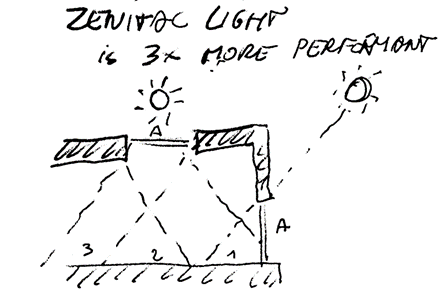 ZENITAL LIGHT
is 3x MORE PERFORMANT
A
A
3 2 1